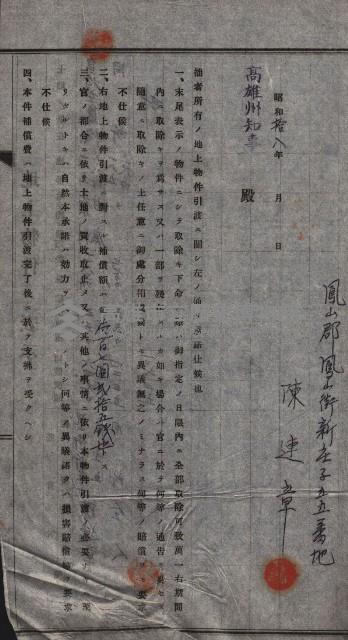 鳳山郡鳳山街新庄子五五番地
陳連章
昭和拾八年 月 日
高雄州知事 殿
拙者所有ノ地上物件引渡ニ關シ左ノ通リ承諾仕候也
一、末尾表示ノ物件ニシテ取除キ下命ノ 御指定ノ日限內ニ全部取除可致萬一右期間
內ニ取除キヲ爲サス又ハ一部ヲ殘 カ如キ場合ハ官ニ於テ何等ノ通告ヲ要セス
隨意ニ取除キノ上任意ニ御處分相成 トモ異議無之ノミナラス何等ノ賠償ヲモ要求
不仕候
二、右地上物件引渡ニ對スル補償額ハ金 百七圓貳拾五錢 トス
三、官ノ都合ニ依リ土地ノ買收取止メ又ハ其他ノ事情ニ依リ本物件引渡ノ必要ナキニ至
リタルトキハ自然本承諾ハ効力ヲ トシ何等ノ異議 ハ損害賠償等ヲ要求
不仕候
四、本件補償費ハ地上物件引渡完了後ニ於テ支拂ヲ受クヘシ